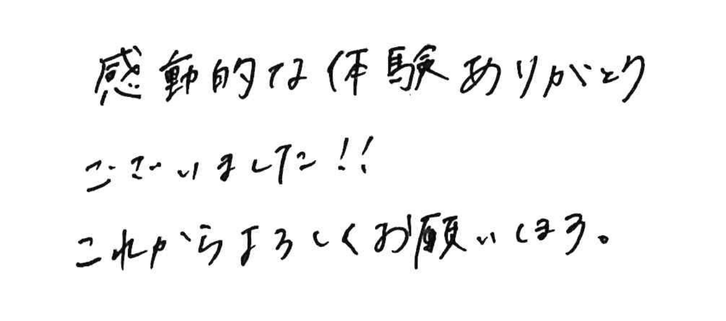 感動的な体験ありがとう
ございました!!
これからよろしくお願いします。